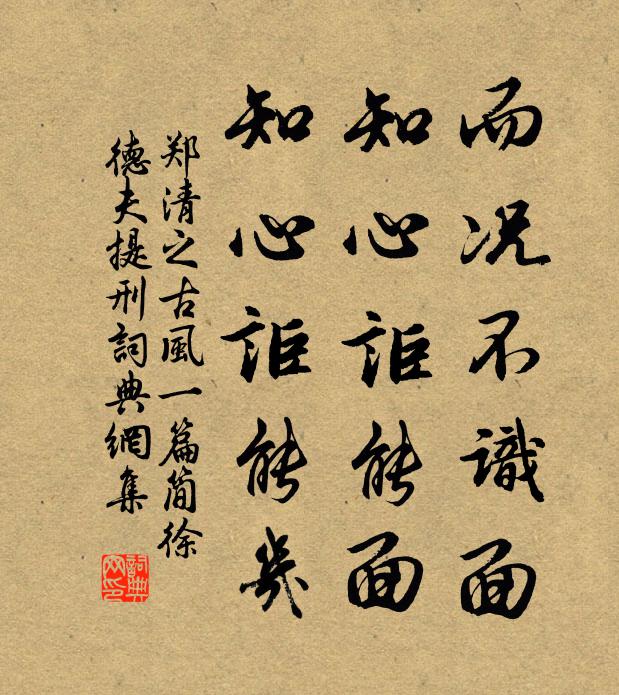 而况不識面
知心詎能面
知心詎能幾
郑清之古風一篇简徐
德夫提刑詞典網集
詞典网印